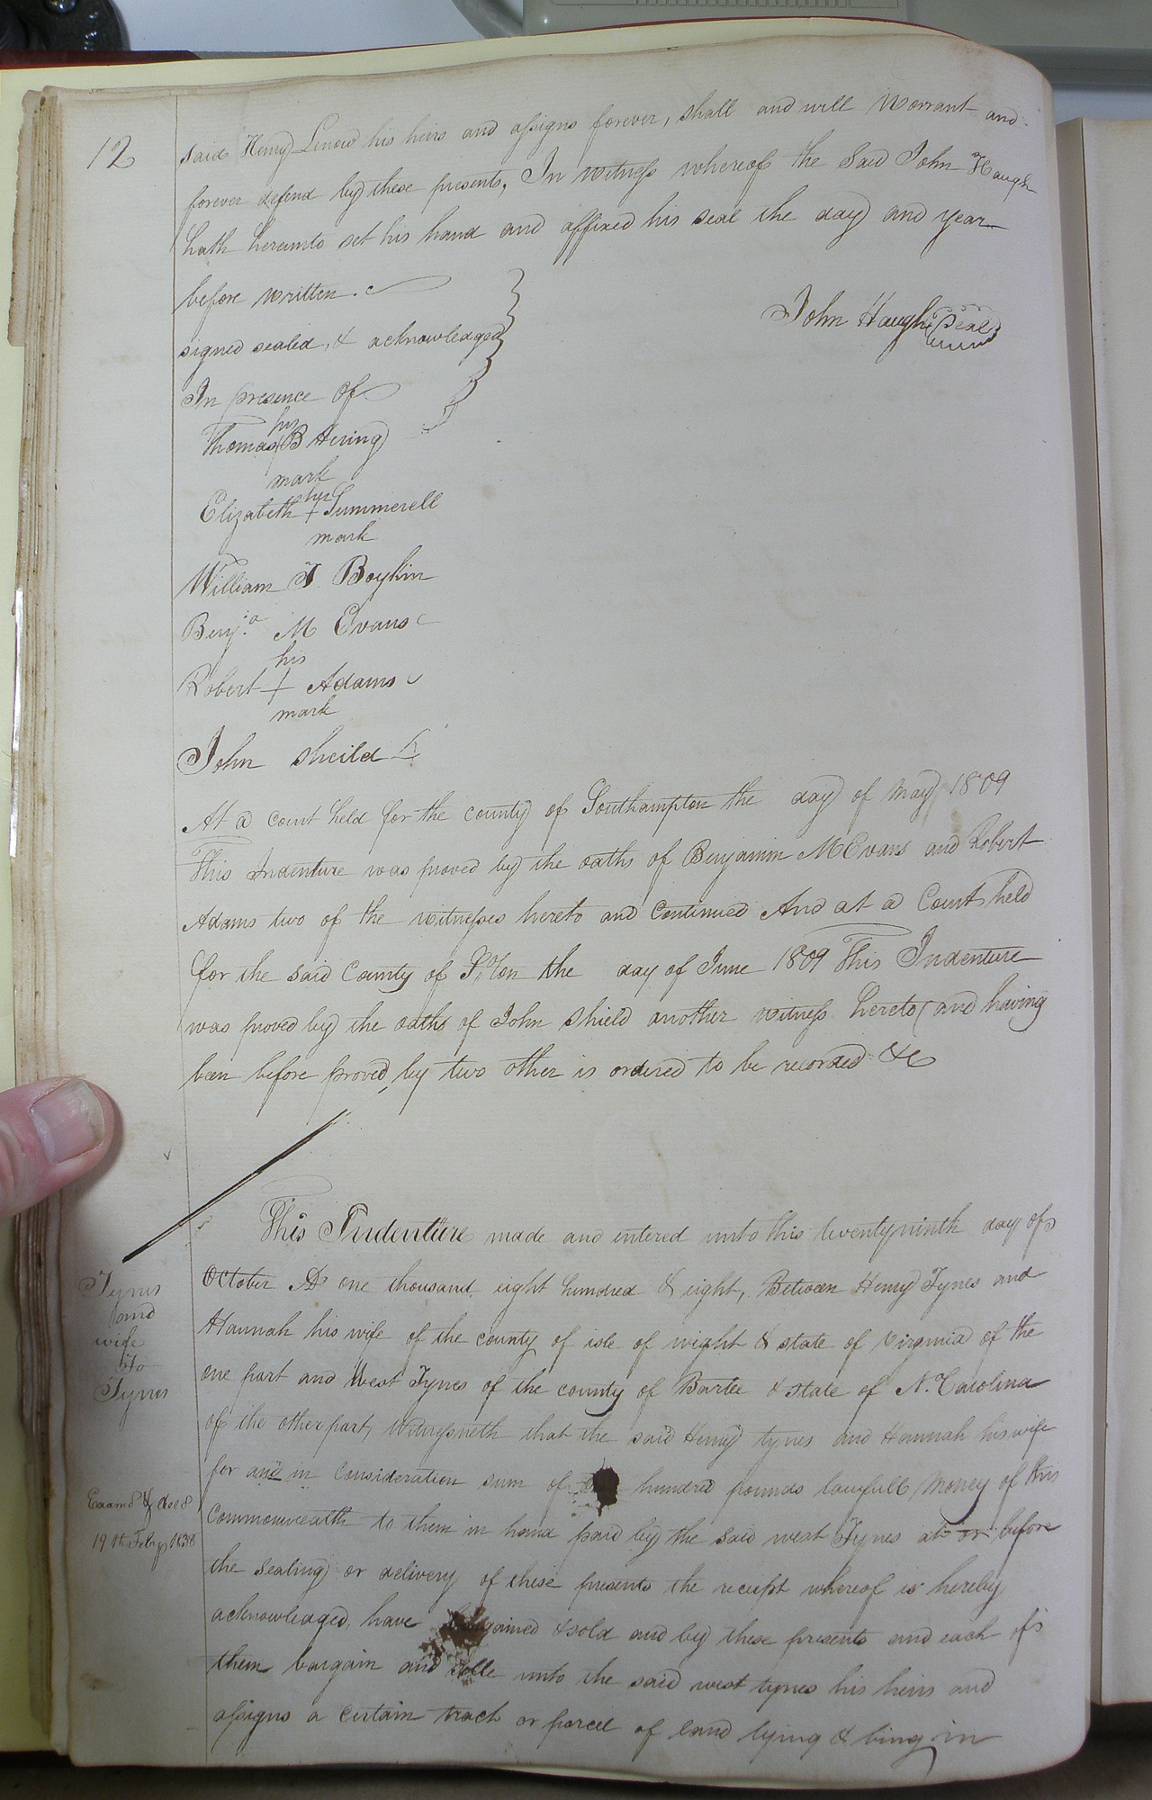 12
said Henry Linow his heirs and assigns forever, shall and will Warrant and
forever defend by these presents, In witness whereof the Said John Haugh
hath hereunto set his hand and affixed his seal the day and year
before written.
signed sealed, & acknowledged
In presence of
John Haugh Seal
his
Thomas B Hering
mark
her
Elizabeth + Summerell
mark
William J Boykin
Benja. M Evans
his
Robert + Adams
mark
John Sheild
At a court held for the county of Southampton the day of May 1809
This Indenture was proved by the oaths of Benjamin M Evans and Robert
Adams two of the witnesses hereto and Continued And at a Court held
for the said County of S.Ton the day of June 1809 This Indenture
was proved by the oaths of John Shield another witness hereto and having
been before proved by two other is ordered to be recorded &c
This Indenture made and entered unto this twentyninth day of
October AD one thousand eight hundred & eight, Between Henry Tynes and
Hannah his wife of the county of isle of wight & state of virginia of the
one part and West Tynes of the county of Bartee & state of N. Carolina
of the other part, Witnessneth that the said Henry tynes and Hannah his wife
for and in Consideration sum of hundred pounds lawfull Money of this
Commonwealth to them in hand paid by the said west Tynes at or before
the sealing or delivery of these presents the receipt whereof is hereby
acknowledged, have bargained & sold and by these presents and each of
them bargain and selle unto the said west tynes his heirs and
assigns a certain track or parcel of land lying & being in
Tynes
and
wife
To
Tynes
Examd & deld
19th Feby 1838